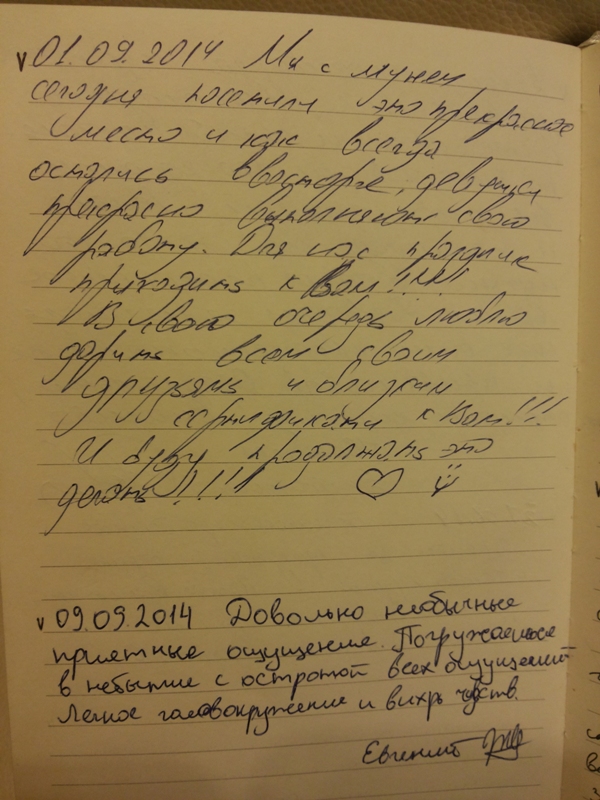 v 01.09.2014 Мы с мужем
сегодня посетили это прекрасное
место и как всегда
остались в восторге, девушки
прекрасно выполняют свою
работу. Для нас праздник
приходить к Вам!!!!!
В свою очередь люблю
дарить всем своим
друзьям и близким
сертификаты к Вам!!!
И буду продолжать это
делать!!!!
v 09.09.2014 Довольно необычные
приятные ощущение. Погружаешься
в небытие с остротой всех ощущений
Легкое головокружение и вихрь чувств.
Евгений